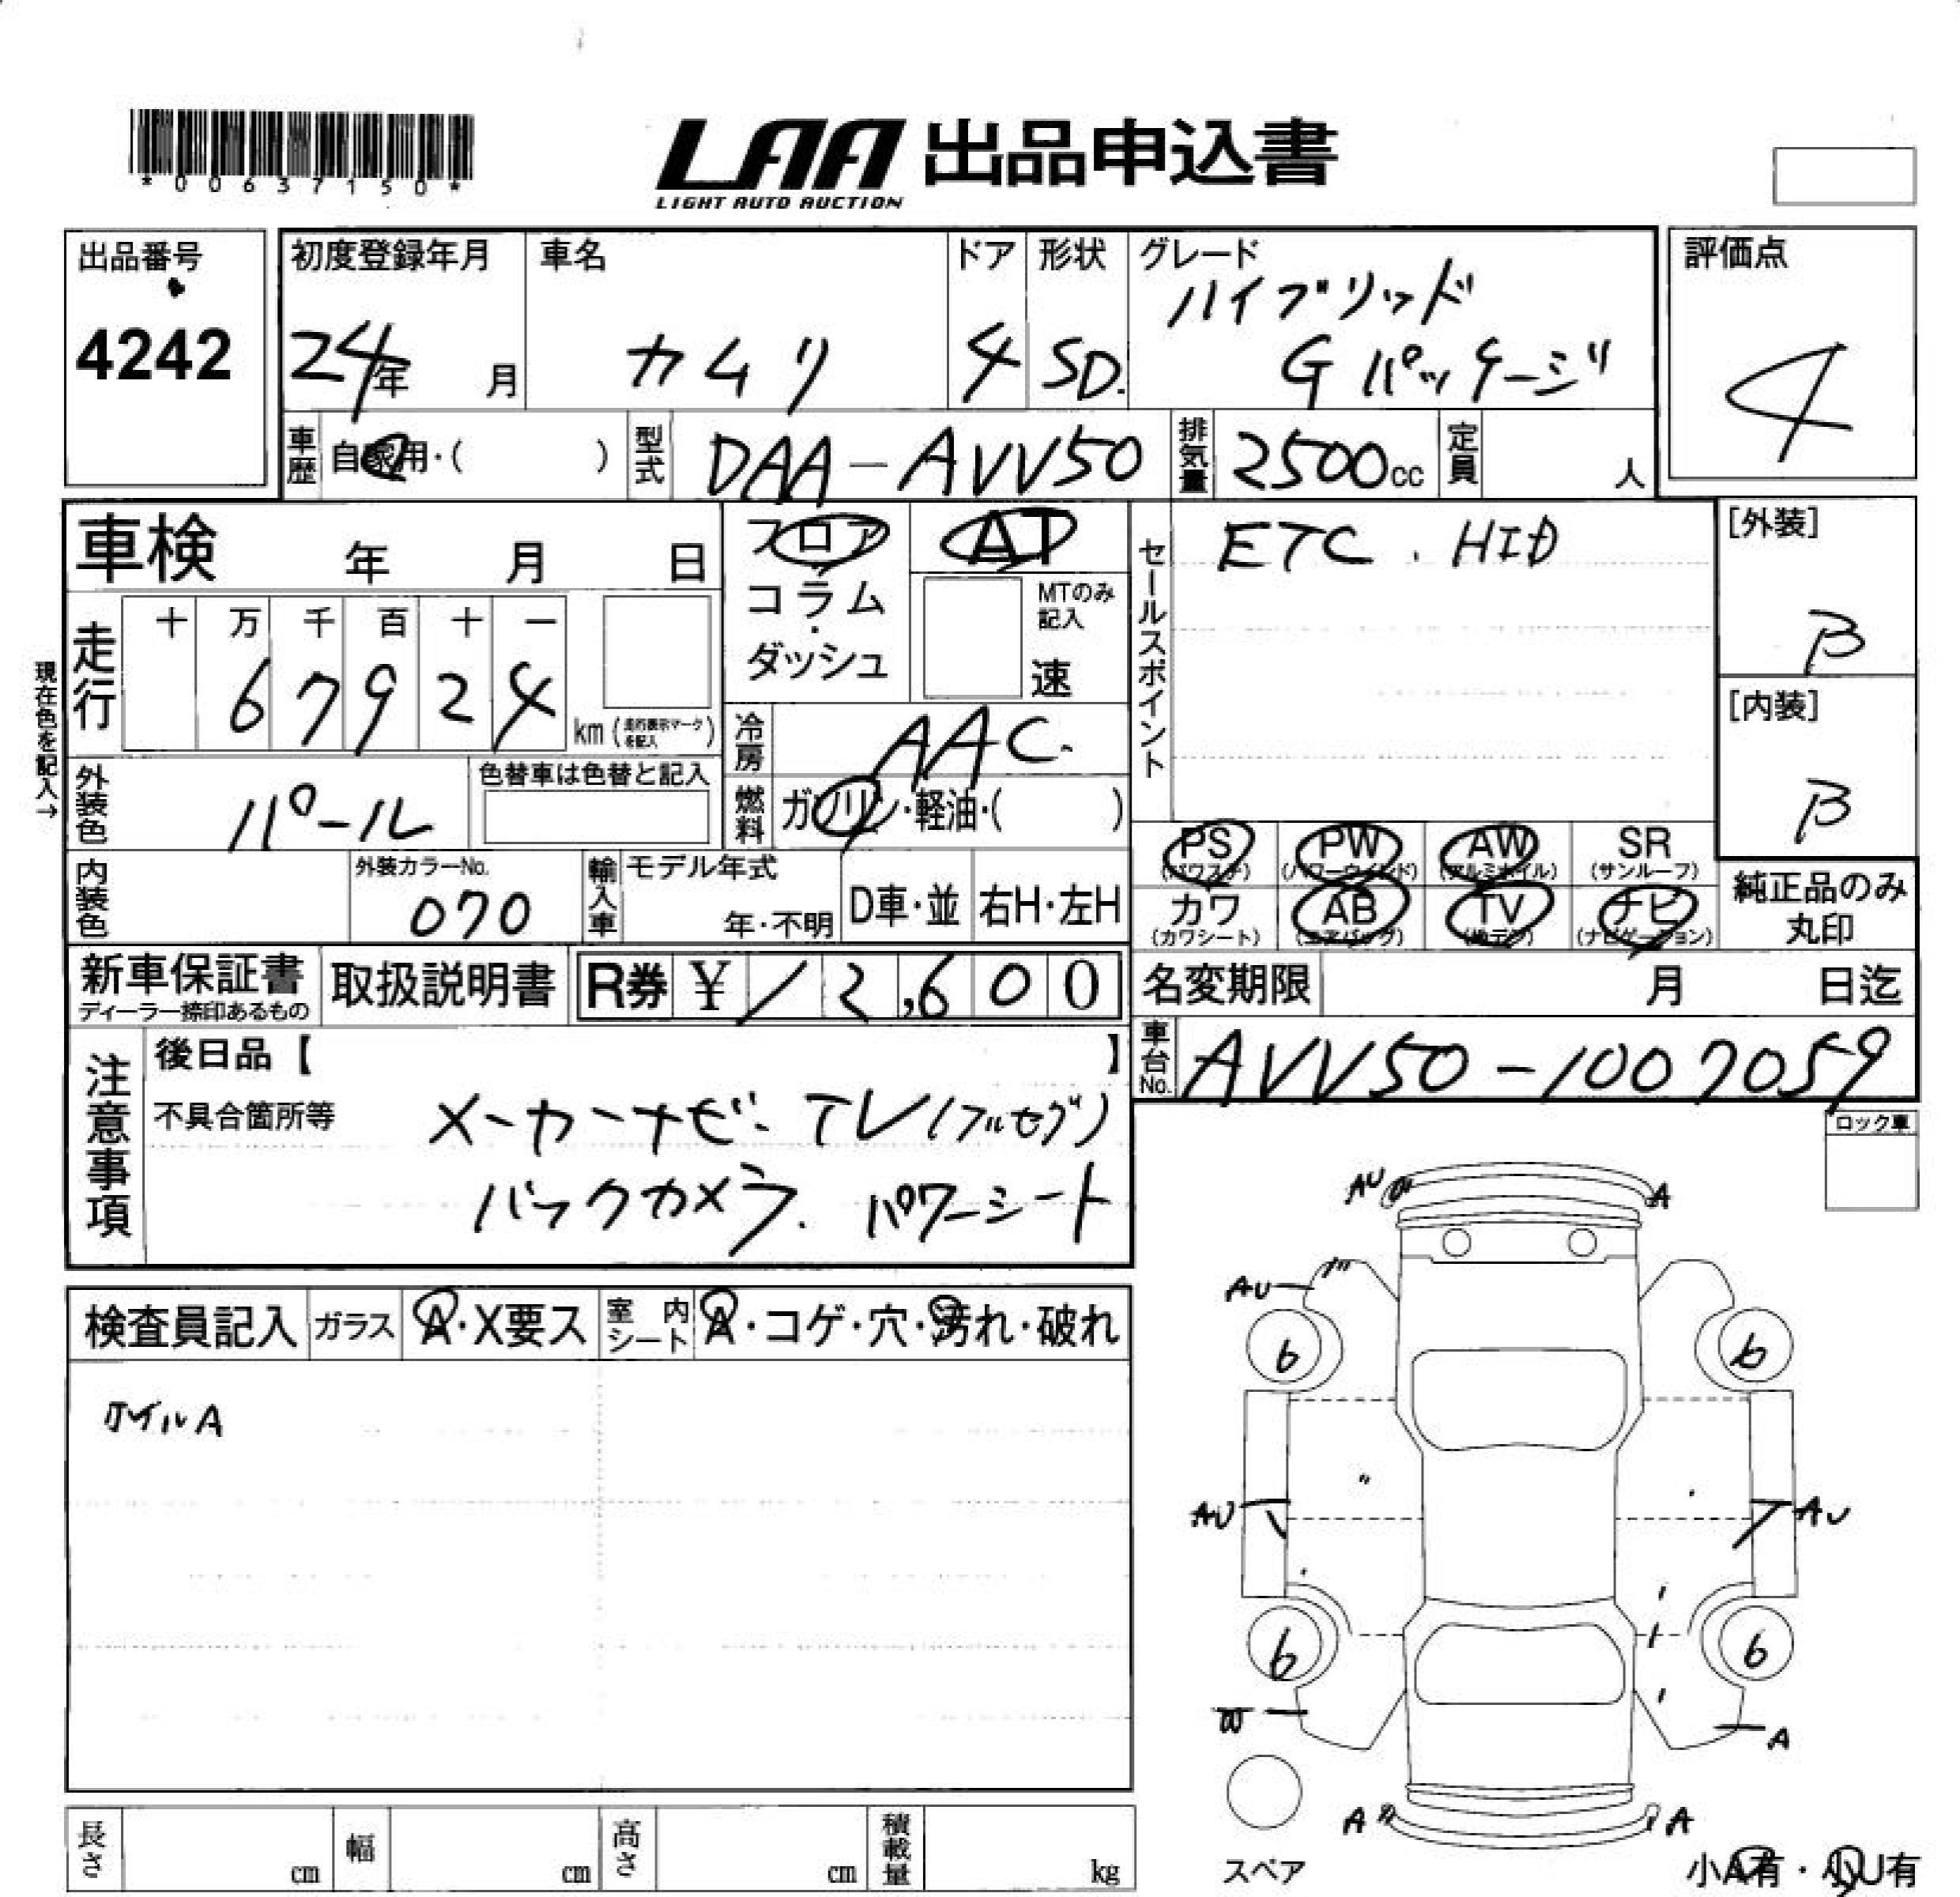 *00637150*
LAA 出品申込書
LIGHT AUTO AUCTION
出品番号
4242
初度登録年月
24年 月
車名
カムリ
ドア
4
形状
SD.
グレード
ハイブリッド
Gパッケージ
評価点
4
車歴 自家用・( )
型式 DAA-AVV50
排気量 2500cc
定員 人
車検 年 月 日
フロア
コラム
・
ダッシュ
AT
MTのみ
記入
速
セールスポイント
ETC . HID
[外装]
B
[内装]
B
現在色を記入→
走行
十 万 千 百 十 一
6 7 9 2 4
km (走行表示マークを記入)
冷房 AAC.
燃料 ガソリン・軽油・( )
外装色 パール
色替車は色替と記入
内装色
外装カラーNo.
070
輸入車
モデル年式
年・不明
D車・並
右H・左H
PS (パワステ)
PW (パワーウィンド)
AW (アルミホイル)
SR (サンルーフ)
カワ (カワシート)
AB (エアバッグ)
TV
ナビ (ナビゲーション)
純正品のみ
丸印
新車保証書
ディーラー捺印あるもの
取扱説明書
R券 ¥12,600
名変期限 月 日迄
車台No. AVV50-1007059
注意事項
後日品【 】
不具合箇所等
メーカーナビ. TV(フルセグ)
バックカメラ. パワーシート
ロック車
検査員記入
ガラス A・X要ス
室内シート A・コゲ・穴・汚れ・破れ
ホイルA
AU A
AU
6 6
AU AU
6 6
W A
A A
スペア
小A有・小U有
長さ cm
幅 cm
高さ cm
積載量 kg